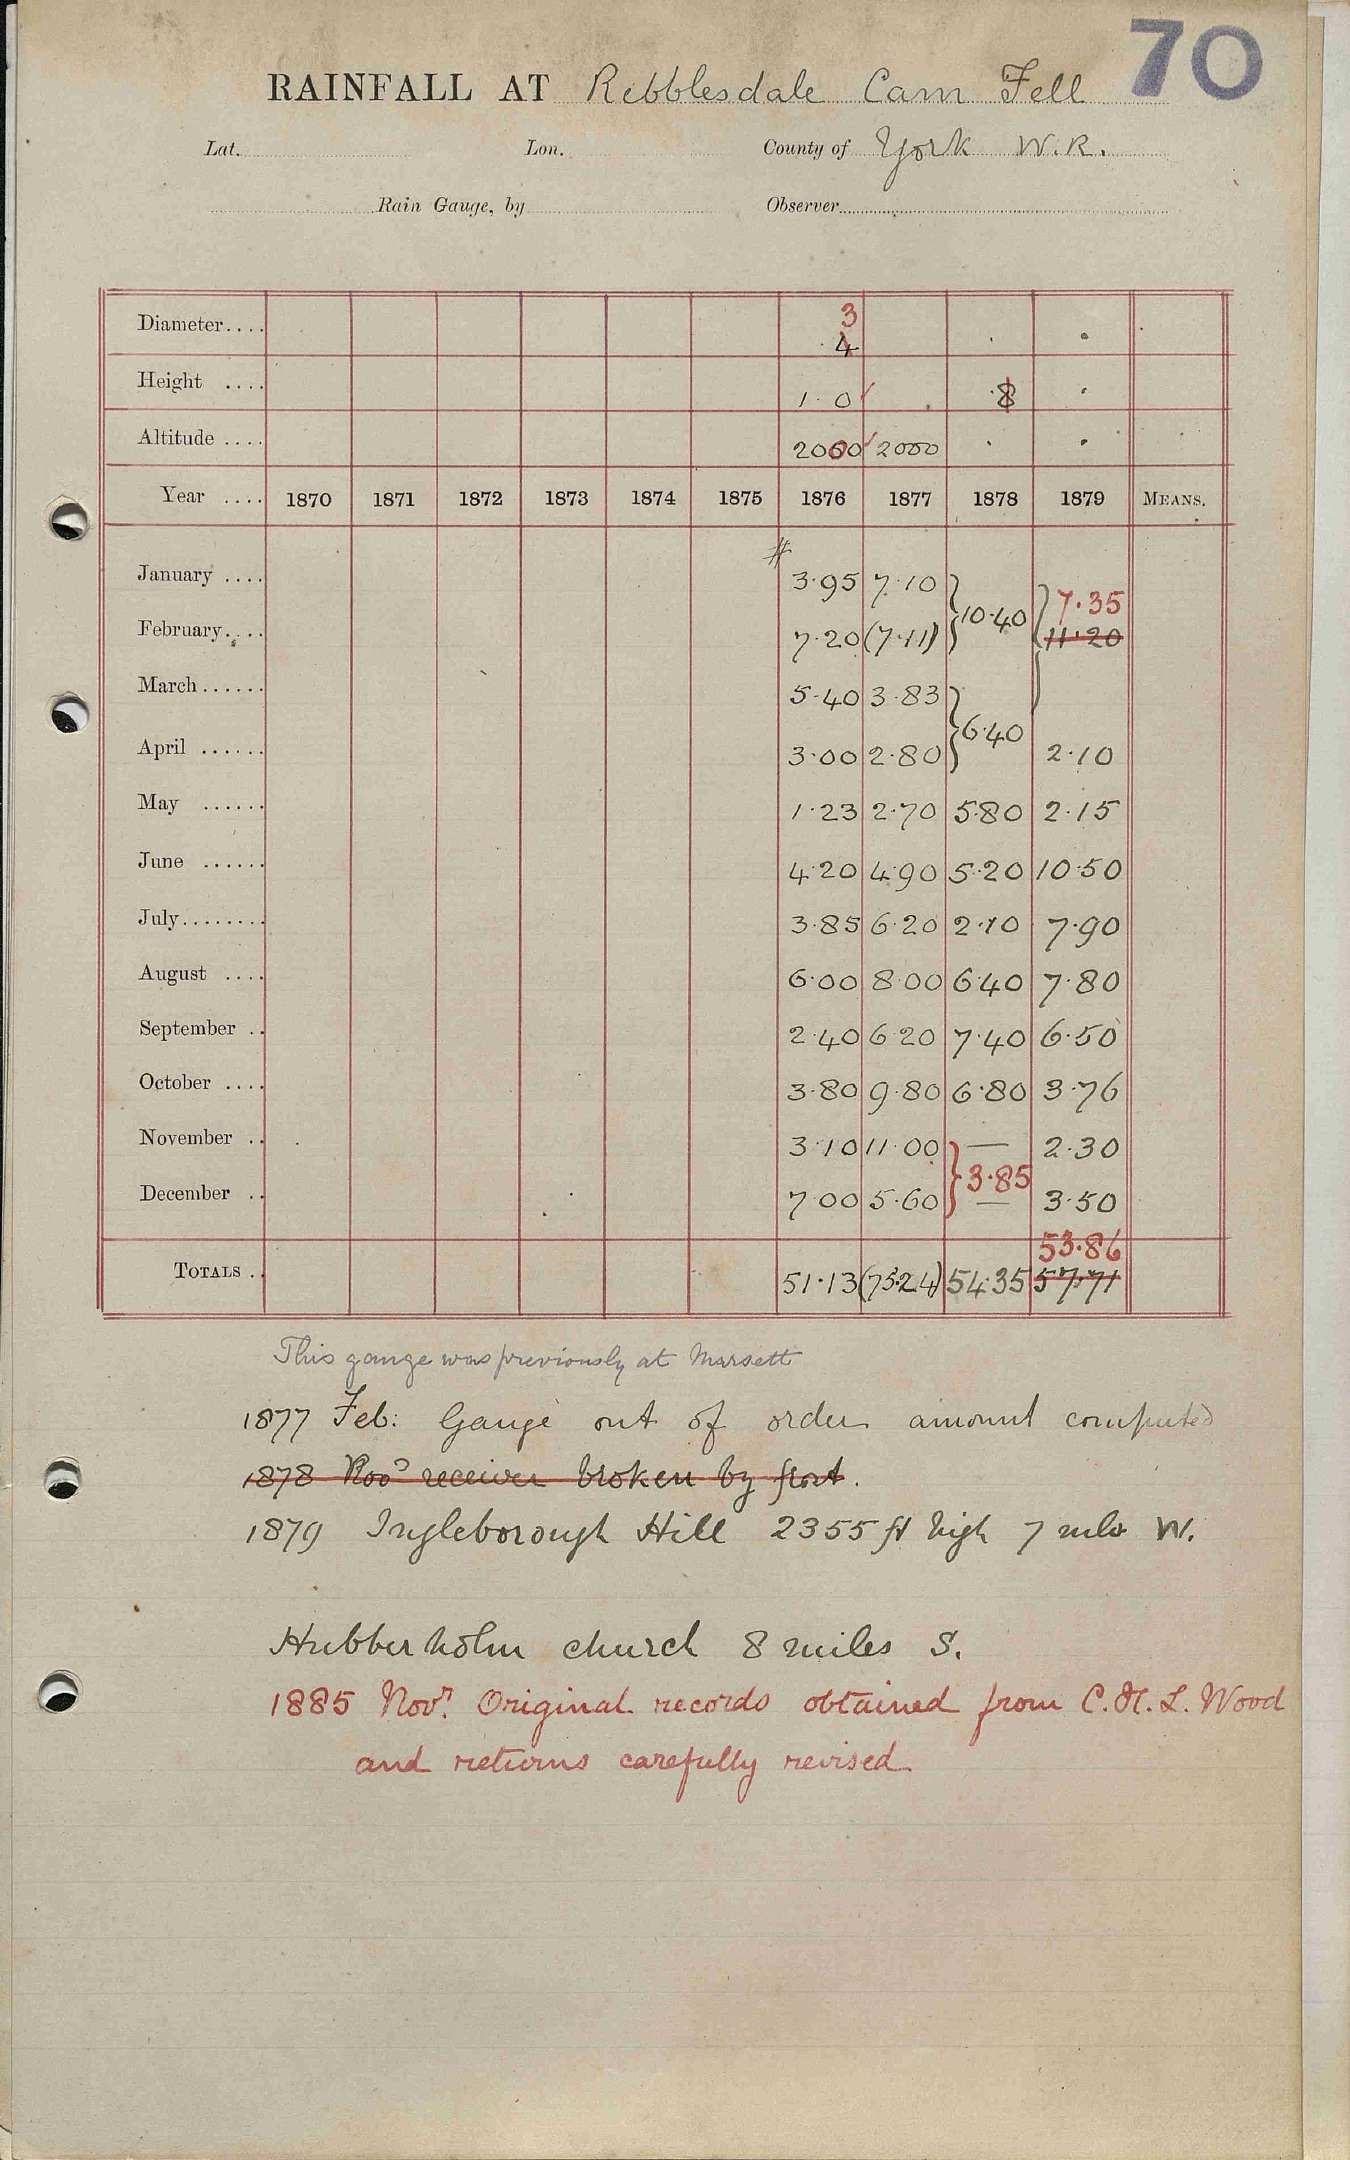 70
RAINFALL AT Ribblesdale Cam Fell
Lat. Lon. County of York W.R.
Rain Gauge, by Observer
Diameter.... 3
4
Height .... 1.0 8
Altitude .... 2000 2000
Year .... 1870 1871 1872 1873 1874 1875 1876 1877 1878 1879 MEANS.
#
January .... 3.95 7.10 } 10.40 } 7.35
February.... 7.20 (7.11) 11.20
March...... 5.40 3.83 } 6.40
April ...... 3.00 2.80 2.10
May ...... 1.23 2.70 5.80 2.15
June ...... 4.20 4.90 5.20 10.50
July........ 3.85 6.20 2.10 7.90
August .... 6.00 8.00 6.40 7.80
September .. 2.40 6.20 7.40 6.50
October .... 3.80 9.80 6.80 3.76
November .. 3.10 11.00 — 2.30
} 3.85
December .. 7.00 5.60 — 3.50
53.86
TOTALS .. 51.13 (75.24) 54.35 57.71
This gauge was previously at Marsett
1877 Feb: Gauge out of order amount computed
1878 Novr receiver broken by frost.
1879 Ingleborough Hill 2355 ft high 7 mls W.
Hubberholm church 8 miles S.
1885 Novr. Original records obtained from C.H.L. Wood
and returns carefully revised.